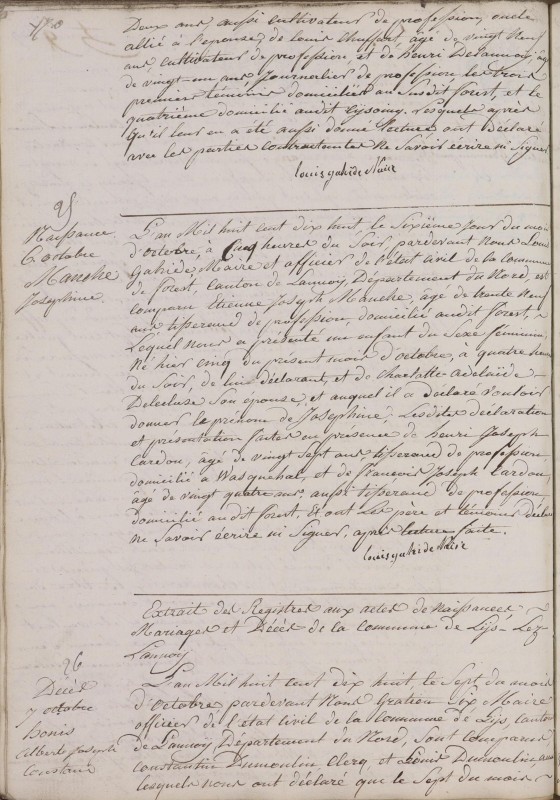 Deux ans aussi cultivateur de profession, oncle
allié à l'epouse, de louis Chuffart, âgé de vingt neuf
ans, cultivateur de profession, et de henri Delannoy, âgé
de vingt-un ans Journalier de profession, les trois
premiers témoins domiciliés au susdit forest, et le
quatrième domicilié audit Cysoing, lesquels après
Qu'il leur en a été aussi donné lecture ont déclaré
avec les parties contractantes ne Savoir écrire ni Signer
louis gahide Maire
25
Naissance
6 octobre
Manche
Josephine
L'an Mil huit cent dix huit, le Sixième jour du mois
d'octobre, à Cinq heures du Soir, pardevant Nous Louis
Gahide, Maire et officier de l'état Civil de la Commune
de forest, Canton de Lannoy, Département du Nord, est
comparu Etienne Joseph Manche, âgé de trente neuf
ans, tisserand de profession, domicilié audit forest,
Lequel nous a présenté un enfant du Sexe féminin,
Né hier cinq du présent mois d'octobre, à quatre heures
du Soir, de lui déclarant, et de Charlotte adelaïde
Delecluse Son épouse, et auquel il a déclaré vouloir
donner le prénom de Josephine. Lesdites déclaration
et présentation faites en présence de henri Joseph
Cardon, âgé de vingt Sept ans, tisserand de profession,
domicilié à Wasquehal, et de françois Joseph Cardon,
âgé de vingt quatre ans, aussi tisserand de profession,
domicilié audit forest, Et ont les père et témoins déclaré
ne Savoir écrire ni Signer, après lecture faite.
louis gahide Maire
Extrait des Registres aux actes de Naissances
Mariages et Décès de la Commune de Lys-Lez
Lannoy
26
Décès
7 octobre
Bonis
Albert Joseph
Constant
L'an Mil huit cent dix huit, le Sept du mois
d'Octobre, pardevant Nous Gratien Lix Maire
officier de l'état civil de la Commune de Lys, Canton
de Lannoy, Département du Nord, Sont comparus
Constantin Dumoulin Clerq, et Louis Dumoulin,
lesquels nous ont déclaré que le Sept du mois